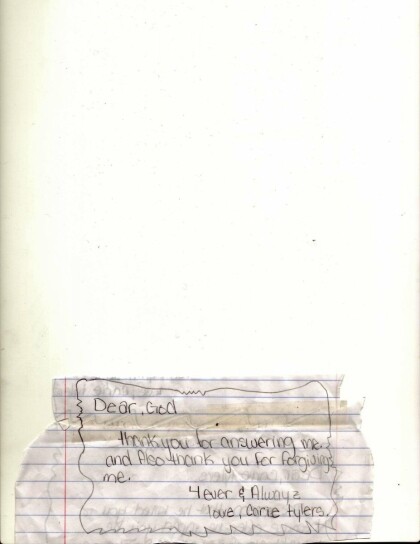 Dear, God
thank you for answering me,
and Also thank you for forgiving
me.
4ever & Alwayz
love, Carie tylers.